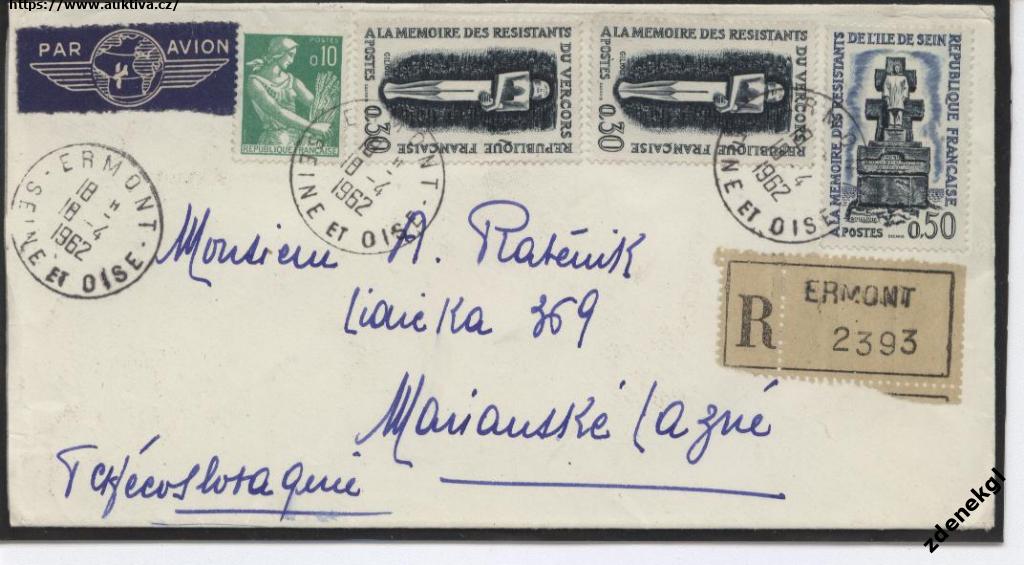 https://www.auktiva.cz/
PAR AVION
POSTES
0,10
REPUBLIQUE FRANÇAISE
A LA MEMOIRE DES RESISTANTS
DU VERCORS
REPUBLIQUE FRANÇAISE
POSTES
0,30
A LA MEMOIRE DES RESISTANTS
DU VERCORS
REPUBLIQUE FRANÇAISE
POSTES
0,30
A LA MEMOIRE DES RESISTANTS
DE L'ILE DE SEIN
REPUBLIQUE FRANÇAISE
POSTES
0,50
ERMONT
18 H
18 - 4
1962
SEINE ET OISE
ERMONT
18 H
18 - 4
1962
SEINE ET OISE
1962
SEINE ET OISE
Monsieur A. Raténik
Lidicka 369
Marianské Lazné
Tchécoslovaquie
R
ERMONT
2393
zdenekgl